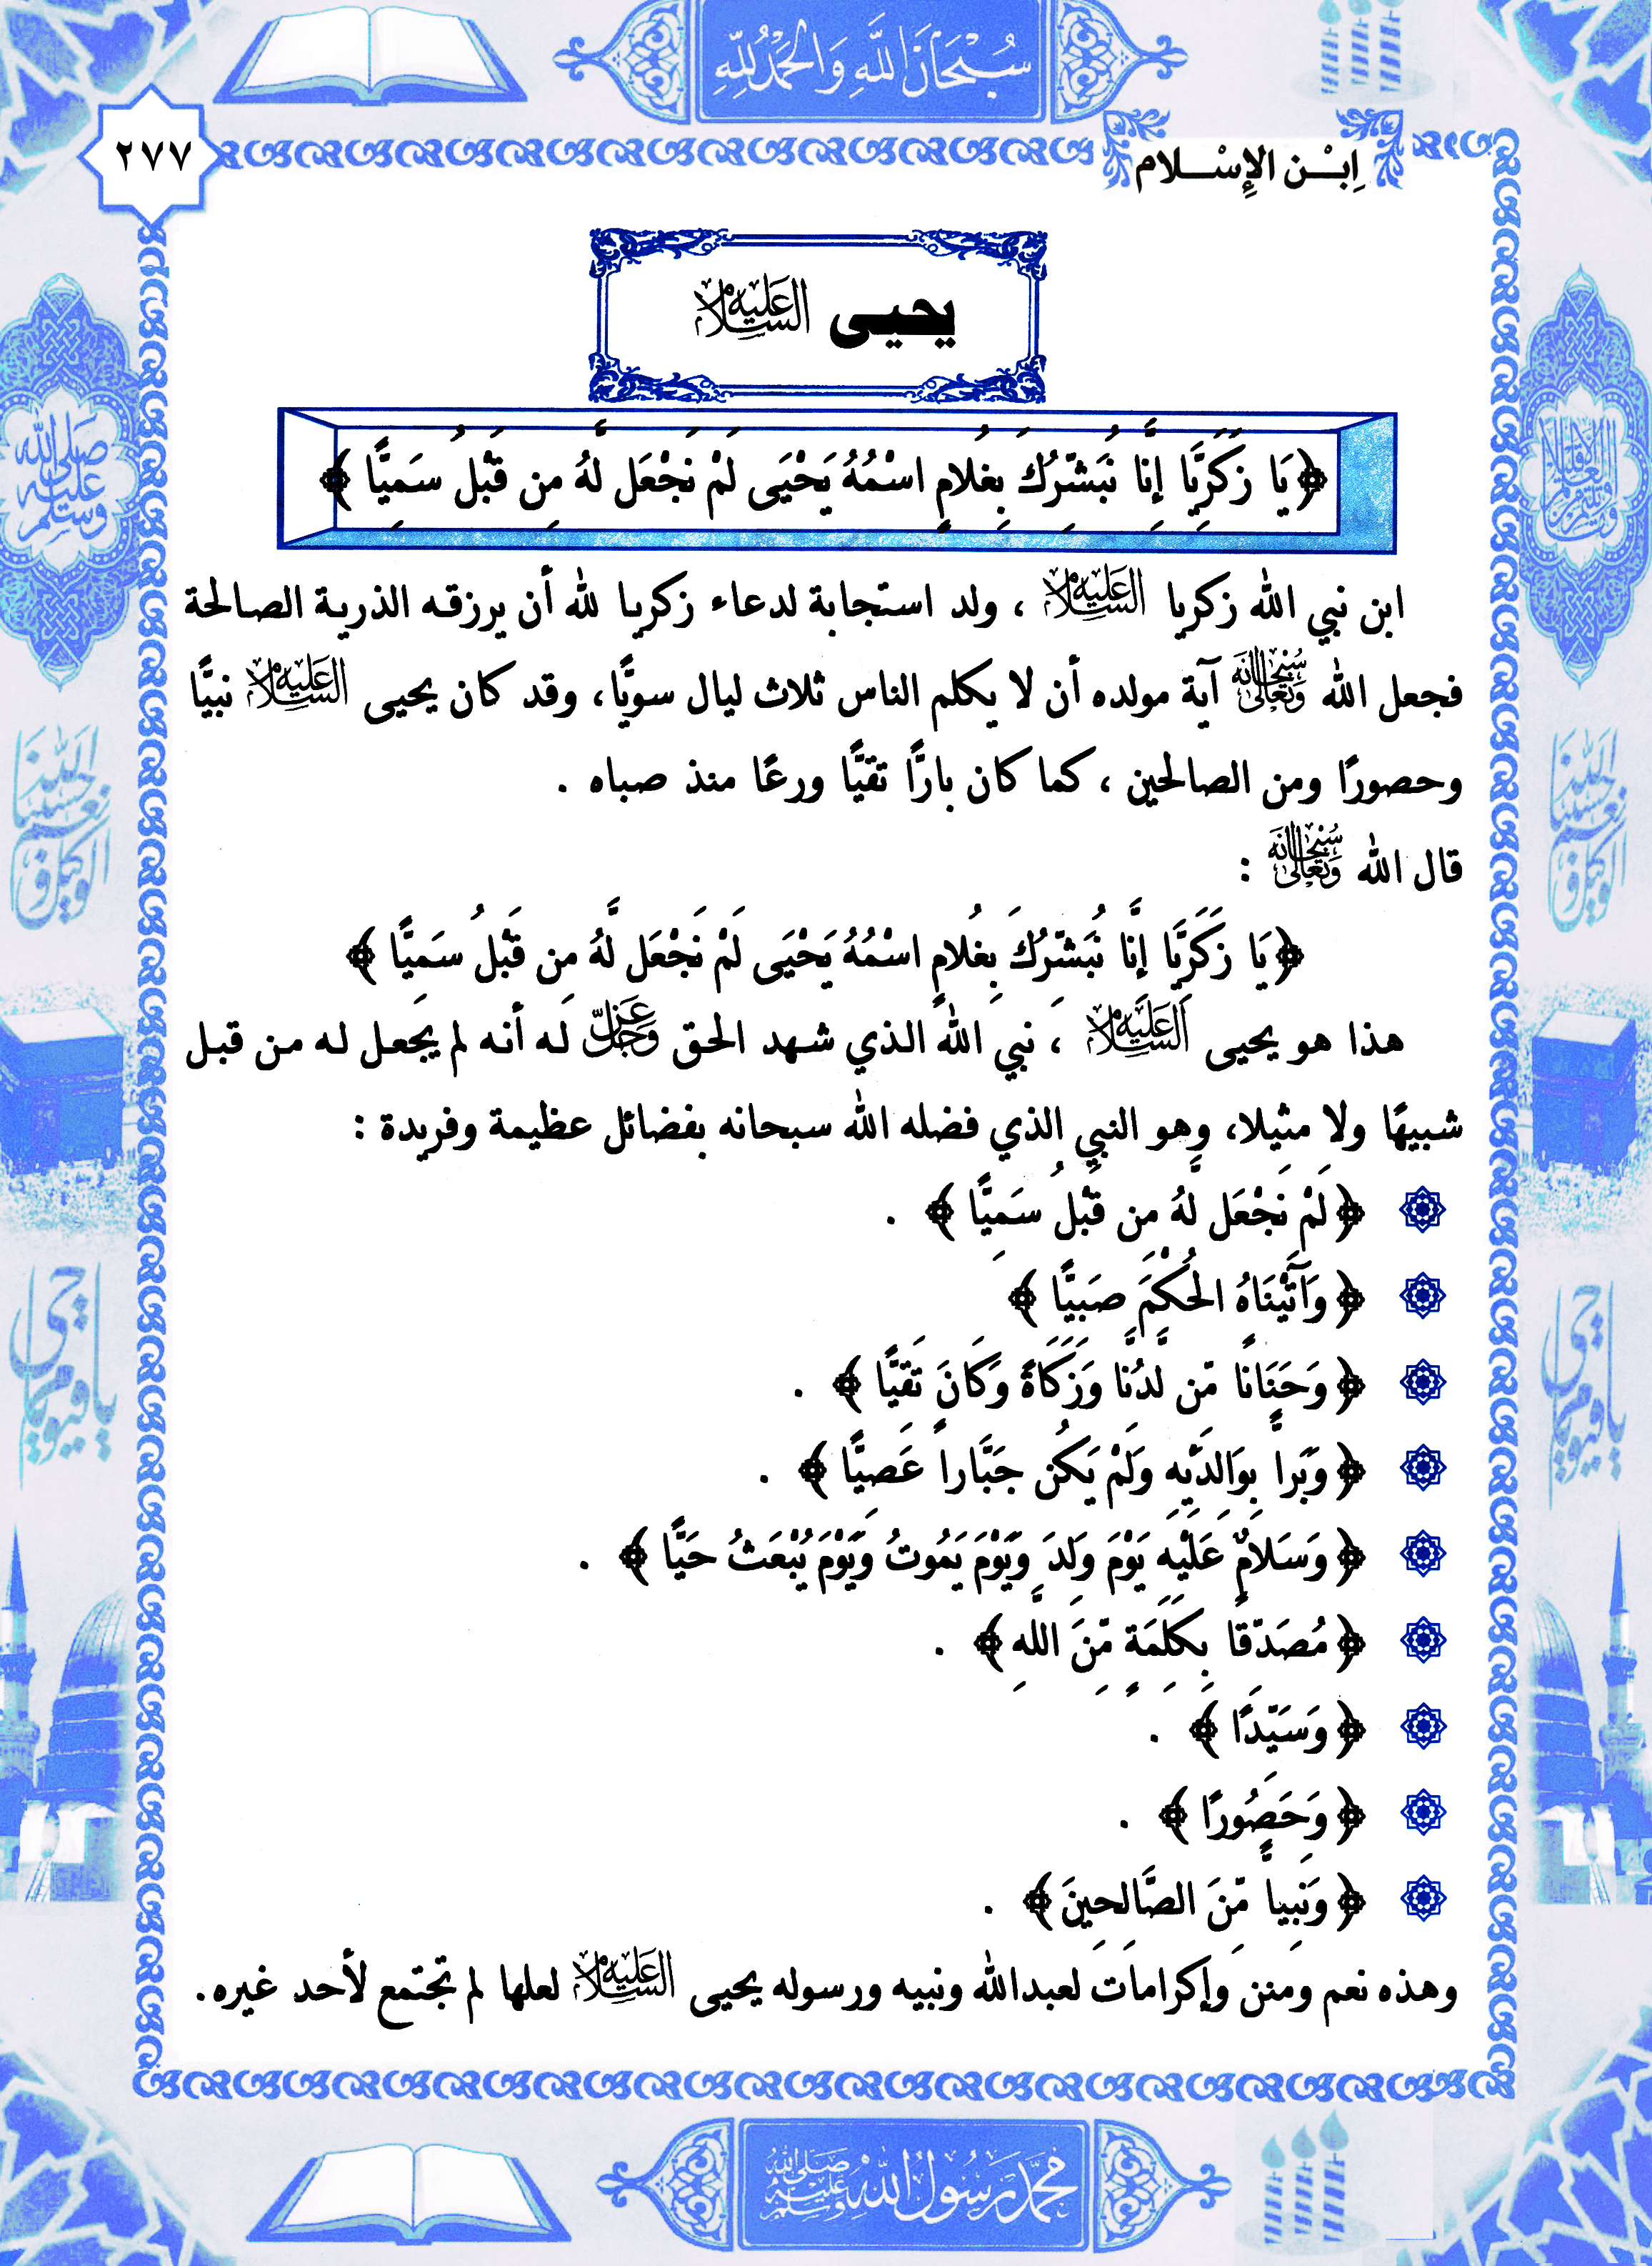 سُبْحَانَ اللَّهِ وَالْحَمْدُ لِلَّهِ
٢٧٧
اِبْن الإِسْلام
يحيى عَلَيْهِ السَّلَام
﴿يَا زَكَرِيَّا إِنَّا نُبَشِّرُكَ بِغُلامٍ اسْمُهُ يَحْيَى لَمْ نَجْعَل لَّهُ مِن قَبْلُ سَمِيًّا﴾
ابن نبي الله زكريا عَلَيْهِ السَّلَام ، ولد استجابة لدعاء زكريا لله أن يرزقه الذرية الصالحة
فجعل الله سُبْحَانَهُ وَتَعَالَى آية مولده أن لا يكلم الناس ثلاث ليال سويًّا، وقد كان يحيى عَلَيْهِ السَّلَام نبيًّا
وحصورًا ومن الصالحين ، كما كان بارًّا تقيًّا ورعًا منذ صباه .
قال الله سُبْحَانَهُ وَتَعَالَى :
﴿يَا زَكَرِيَّا إِنَّا نُبَشِّرُكَ بِغُلامٍ اسْمُهُ يَحْيَى لَمْ نَجْعَل لَّهُ مِن قَبْلُ سَمِيًّا﴾
هذا هو يحيى عَلَيْهِ السَّلَام ، نبي الله الذي شهد الحق عَزَّ وَجَلَّ له أنه لم يجعل له من قبل
شبيهًا ولا مثيلا، وهو النبي الذي فضله الله سبحانه بفضائل عظيمة وفريدة :
﴿لَمْ نَجْعَل لَّهُ مِن قَبْلُ سَمِيًّا﴾ .
﴿وَآتَيْنَاهُ الْحُكْمَ صَبِيًّا﴾
﴿وَحَنَانًا مِّن لَّدُنَّا وَزَكَاةً وَكَانَ تَقِيًّا﴾ .
﴿وَبَرًّا بِوَالِدَيْهِ وَلَمْ يَكُن جَبَّاراً عَصِيًّا﴾ .
﴿وَسَلامٌ عَلَيْهِ يَوْمَ وُلِدَ وَيَوْمَ يَمُوتُ وَيَوْمَ يُبْعَثُ حَيًّا﴾ .
﴿مُصَدِّقًا بِكَلِمَةٍ مِّنَ اللهِ﴾ .
﴿وَسَيِّدًا﴾ .
﴿وَحَصُورًا﴾ .
﴿وَنَبِياًّ مِّنَ الصَّالِحِينَ﴾ .
وهذه نعم ومنن وإكرامات لعبدالله ونبيه ورسوله يحيى عَلَيْهِ السَّلَام لعلها لم تجتمع لأحد غيره.
صَلَّى اللَّهُ عَلَيْهِ وَسَلَّمَ
حَسْبُنَا اللَّهُ وَنِعْمَ الْوَكِيلُ
حَسْبُنَا اللَّهُ وَنِعْمَ الْوَكِيلُ
يا حي يا قيوم
يا حي يا قيوم
مُحَمَّد رَسُولُ اللَّهِ صَلَّى اللَّهُ عَلَيْهِ وَسَلَّمَ